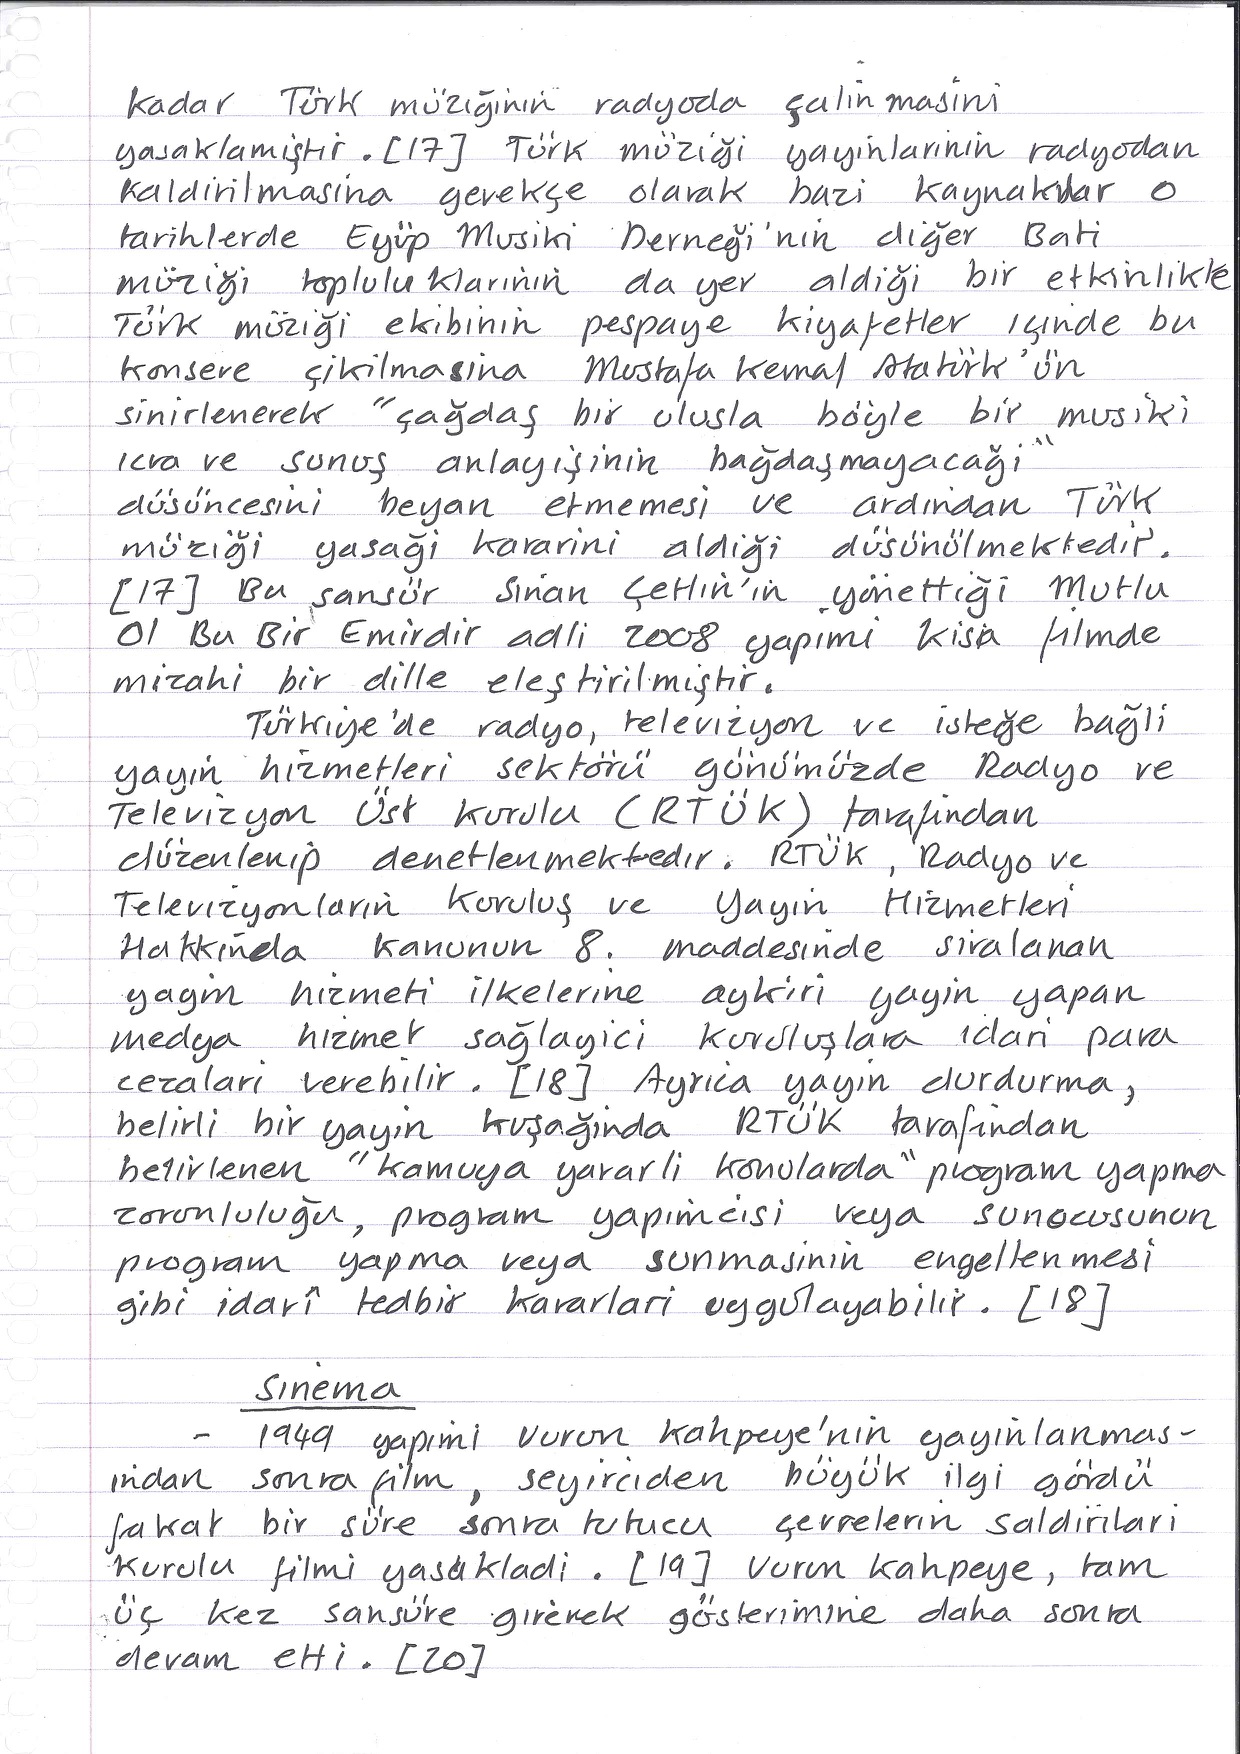 kadar Türk müziğinin radyoda çalinmasini
yasaklamiştir. [17] Türk müziği yayinlarinin radyodan
kaldirilmasina gerekçe olarak bazi kaynaklar o
tarihlerde Eyüp Musiki Derneği'nin diğer Bati
müziği topluluklarinin da yer aldiği bir etkinlikte
Türk müziği ekibinin pespaye kiyafetler içinde bu
konsere çikilmasina Mustafa Kemal Atatürk'ün
sinirlenerek "çağdaş bir ulusla böyle bir musiki
icra ve sunuş anlayişinin bağdaşmayacaği"
düsüncesini beyan etmemesi ve ardindan Türk
müziği yasaği kararini aldiği düsünülmektedir.
[17] Bu sansür Sinan Çetin'in yönettiği Mutlu
Ol Bu Bir Emirdir adli 2008 yapimi kisa filmde
mizahi bir dille eleştirilmiştir.
Türkiye'de radyo, televizyon ve isteğe bağli
yayin hizmetleri sektörü günümüzde Radyo ve
Televizyon Üst Kurulu (RTÜK) tarafindan
düzenlenip denetlenmektedir. RTÜK, Radyo ve
Televizyonlarin Kuruluş ve Yayin Hizmetleri
Hakkinda Kanunun 8. maddesinde siralanan
yayin hizmeti ilkelerine aykiri yayin yapan
medya hizmet sağlayici kuruluşlara idari para
cezalari verebilir. [18] Ayrica yayin durdurma,
belirli bir yayin kuşağinda RTÜK tarafindan
belirlenen "kamuya yararli konularda" program yapma
zorunluluğu, program yapimcisi veya sunucusunun
program yapma veya sunmasinin engellenmesi
gibi idarî tedbir kararlari uygulayabilir. [18]
Sinema
- 1949 yapimi Vurun Kahpeye'nin yayinlanmas-
indan sonra film, seyirciden büyük ilgi gördü
fakat bir süre sonra tutucu çevrelerin saldirilari
kurulu filmi yasakladi. [19] Vurun Kahpeye, tam
üç kez sansüre girerek gösterimine daha sonra
devam etti. [20]